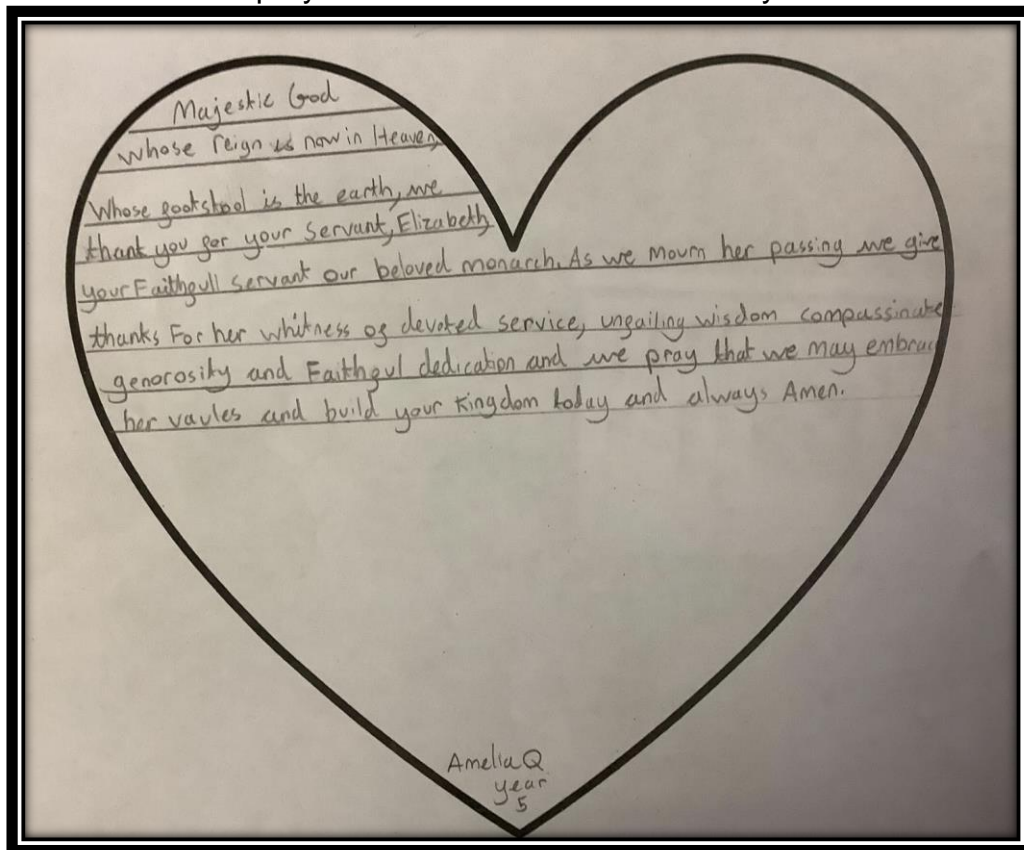 Majestic God
whose reign is now in Heaven,
Whose footstool is the earth, we
thank you for your servant, Elizabeth
your Faithfull servant our beloved monarch. As we mourn her passing we give
thanks For her whitness of devoted service, unfailing wisdom compassinate
genorosity and Faithful dedication and we pray that we may embrac
her vaules and build your Kingdom today and always Amen.
Amelia Q
year
5